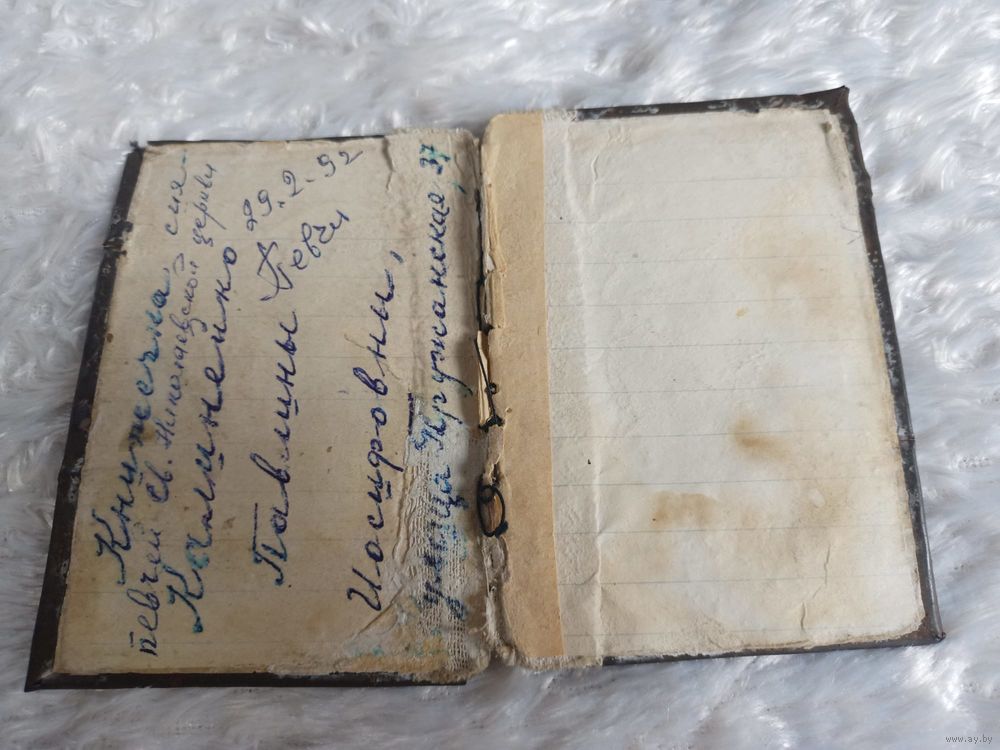 Книжечка сия
певчей Св. Николаевской церкви
Калиненко
Павлины
29.2.92
Иосифовны,
улица Пружанская, 37
www.ay.by